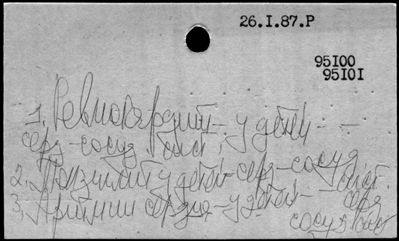 26.I.87.Р
95I00
95I0I
1. Ревмокардит - у детей -
серд-сосуд сист.
2. у детей - серд-сосуд сист.
3. Аритмии сердца - у детей - серд
сосуд сист